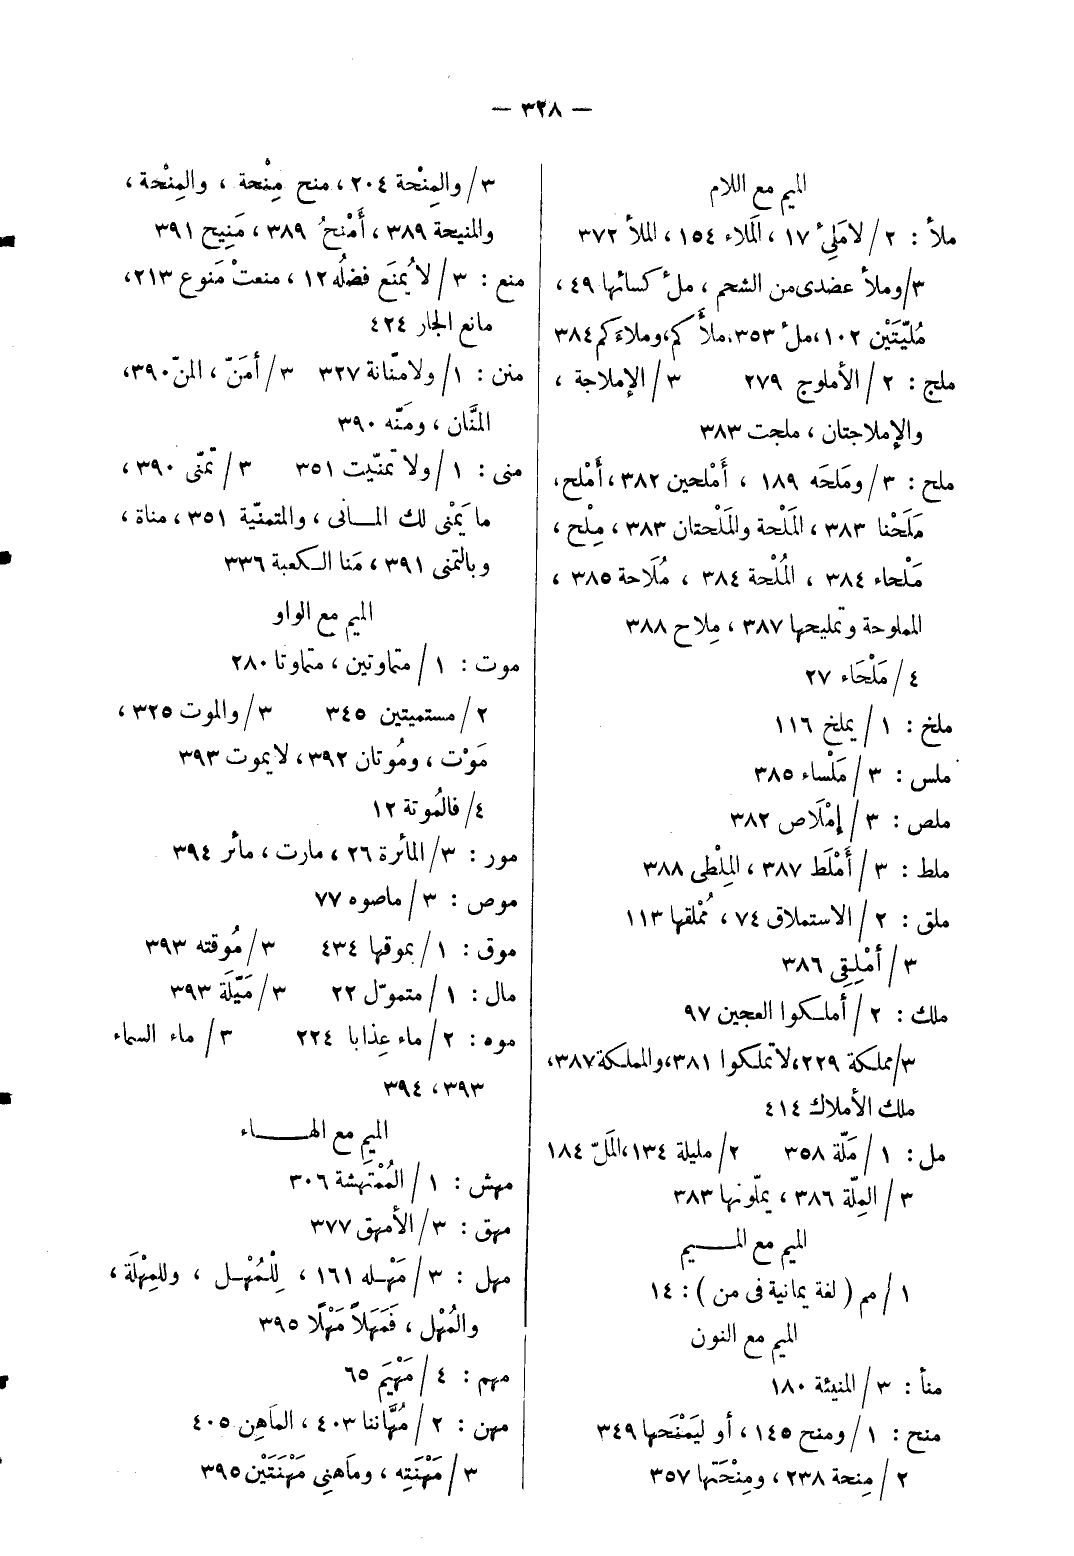 — ٣٢٨ —
الميم مع اللام
ملأ : ٢/ لامَلِئٌ ١٧ ، المَلاء ١٥٤ ، الملأ ٣٧٢
٣/ وملأ عضدى من الشحم ، ملءُ كسائها ٤٩ ،
مُليّتَيْن ١٠٢ ، ملءُ ٣٥٣ ، ملأَكم ، وملاءَكم ٣٨٤
ملج : ٢/ الأملوج ٢٧٩ ٣/ الإملاجة ،
والإملاجتان ، ملجت ٣٨٣
ملح : ٣/ ومَلحَه ١٨٩ ، أَمْلحين ٣٨٢ ، أَمْلح ،
مَلَحْنا ٣٨٣ ، المَلْحة والمَلْحتان ٣٨٣ ، مِلْح ،
مَلْحاء ٣٨٤ ، المُلْحة ٣٨٤ ، مُلَاحة ٣٨٥ ،
المملوحة وتمليحها ٣٨٧ ، مِلاح ٣٨٨
٤/ مَلْحَاء ٢٧
ملخ : ١/ يملخ ١١٦
ملس : ٣/ مَلْساء ٣٨٥
ملص : ٣/ إمْلَاص ٣٨٢
ملط : ٣/ أَمْلَط ٣٨٧ ، المِلْطى ٣٨٨
ملق : ٢/ الاستملاق ٧٤ ، مُمْلقها ١١٣
٣/ أمْلِقِى ٣٨٦
ملك : ٢/ أملكوا العجين ٩٧
٣/ مملكة ٢٢٩ ، لا تملكوا ٣٨١ ، والمملكة ٣٨٧ ،
ملك الأملاك ٤١٤
مل : ١/ مَلّة ٣٥٨ ٢/ مليلة ١٣٤ ، المَلّ ١٨٤
٣/ المِلّة ٣٨٦ ، يملّونها ٣٨٣
الميم مع المـــيم
١/ مم ( لغة يمانية فى من ) : ١٤
الميم مع النون
منأ : ٣/ المنيئة ١٨٠
منح : ١/ ومنح ١٤٥ ، أو ليَمْنَحها ٣٤٩
٢/ مِنحة ٢٣٨ ، ومِنْحَتها ٣٥٧
٣/ والمِنْحة ٢٠٤ ، منح مِنْحة ، والمِنْحة ،
والمنيحة ٣٨٩ ، أَمْنحُ ٣٨٩ ، مَنِيح ٣٩١
منع : ٣/ لا يُمنَع فضلُه ١٢ ، منعتْ مَنوع ٢١٣ ،
مانع الجار ٤٢٤
منن : ١/ ولا منّانة ٣٢٧ ٣/ أمَنّ ، المنّ ٣٩٠ ،
المنَّان ، ومَنّه ٣٩٠
منى : ١/ ولا تمنّيت ٣٥١ ٣/ تمنّى ٣٩٠ ،
ما يَمْنى لك المـانى ، والمتمنّية ٣٥١ ، مناة ،
وبالتمنى ٣٩١ ، مَنا الكعبة ٣٣٦
الميم مع الواو
موت : ١/ متماوتين ، متماوتا ٢٨٠
٢/ مستميتين ٣٤٥ ٣/ والموت ٣٢٥ ،
مَوْت ، ومُوتان ٣٩٢ ، لا يموت ٣٩٣
٤/ فالمُوتة ١٢
مور : ٣/ المائرة ٢٦ ، مارت ، مائر ٣٩٤
موص : ٣/ ماصوه ٧٧
موق : ١/ بموقها ٤٣٤ ٣/ مُوقته ٣٩٣
مال : ١/ متموّل ٢٢ ٣/ مَيّلَة ٣٩٣
موه : ٢/ ماء عِذابا ٢٢٤ ٣/ ماء السماء
٣٩٣ ، ٣٩٤
الميم مع الهـــاء
مهش : ١/ المُمْتَهشة ٣٠٦
مهق : ٣/ الأمهق ٣٧٧
مهل : ٣/ مَهْـله ١٦١ ، لِلْمُهْـل ، وللمِهْلَة ،
والمُهْل ، فَمَهَلاً مَهْلًا ٣٩٥
مهم : ٤/ مَهْيَم ٦٥
مهن : ٢/ مُهَّاننا ٤٠٣ ، المَاهِن ٤٠٥
٣/ مَهْنَتِه ، ومَاهنِي مَهْنَتَيْن ٣٩٥